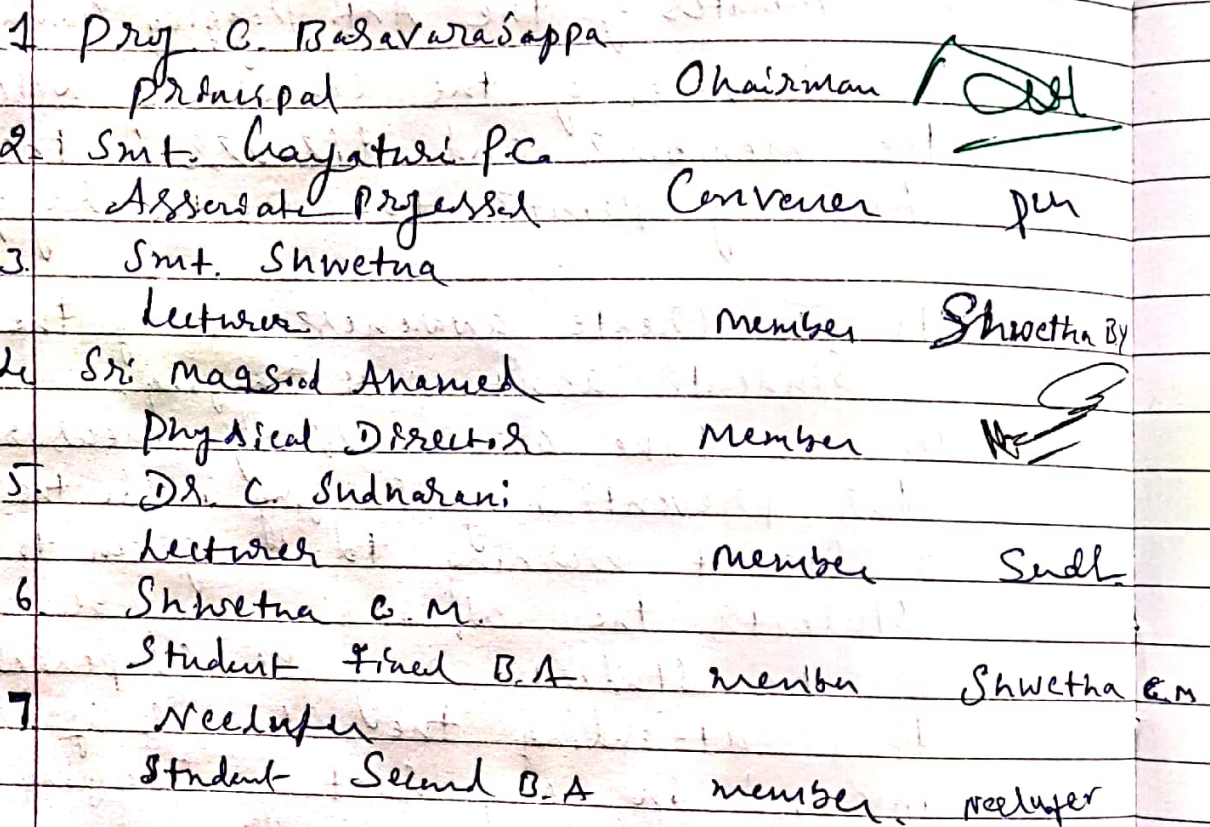 1 Prof C. Basavarajappa
Principal Chairman
2. Smt. Gayathri P.C.
Associate Professor Convener
3. Smt. Shwetha
Lecturer Member Shwetha BY
4 Sri Maqsood Ahamed
Physical Director Member
5. Dr. C. Sudharani
Lecturer member Sudh.
6. Shwetha C.M.
Student Final B.A member Shwetha C M
7 Neelufer
Student Second B.A member. Neelufer